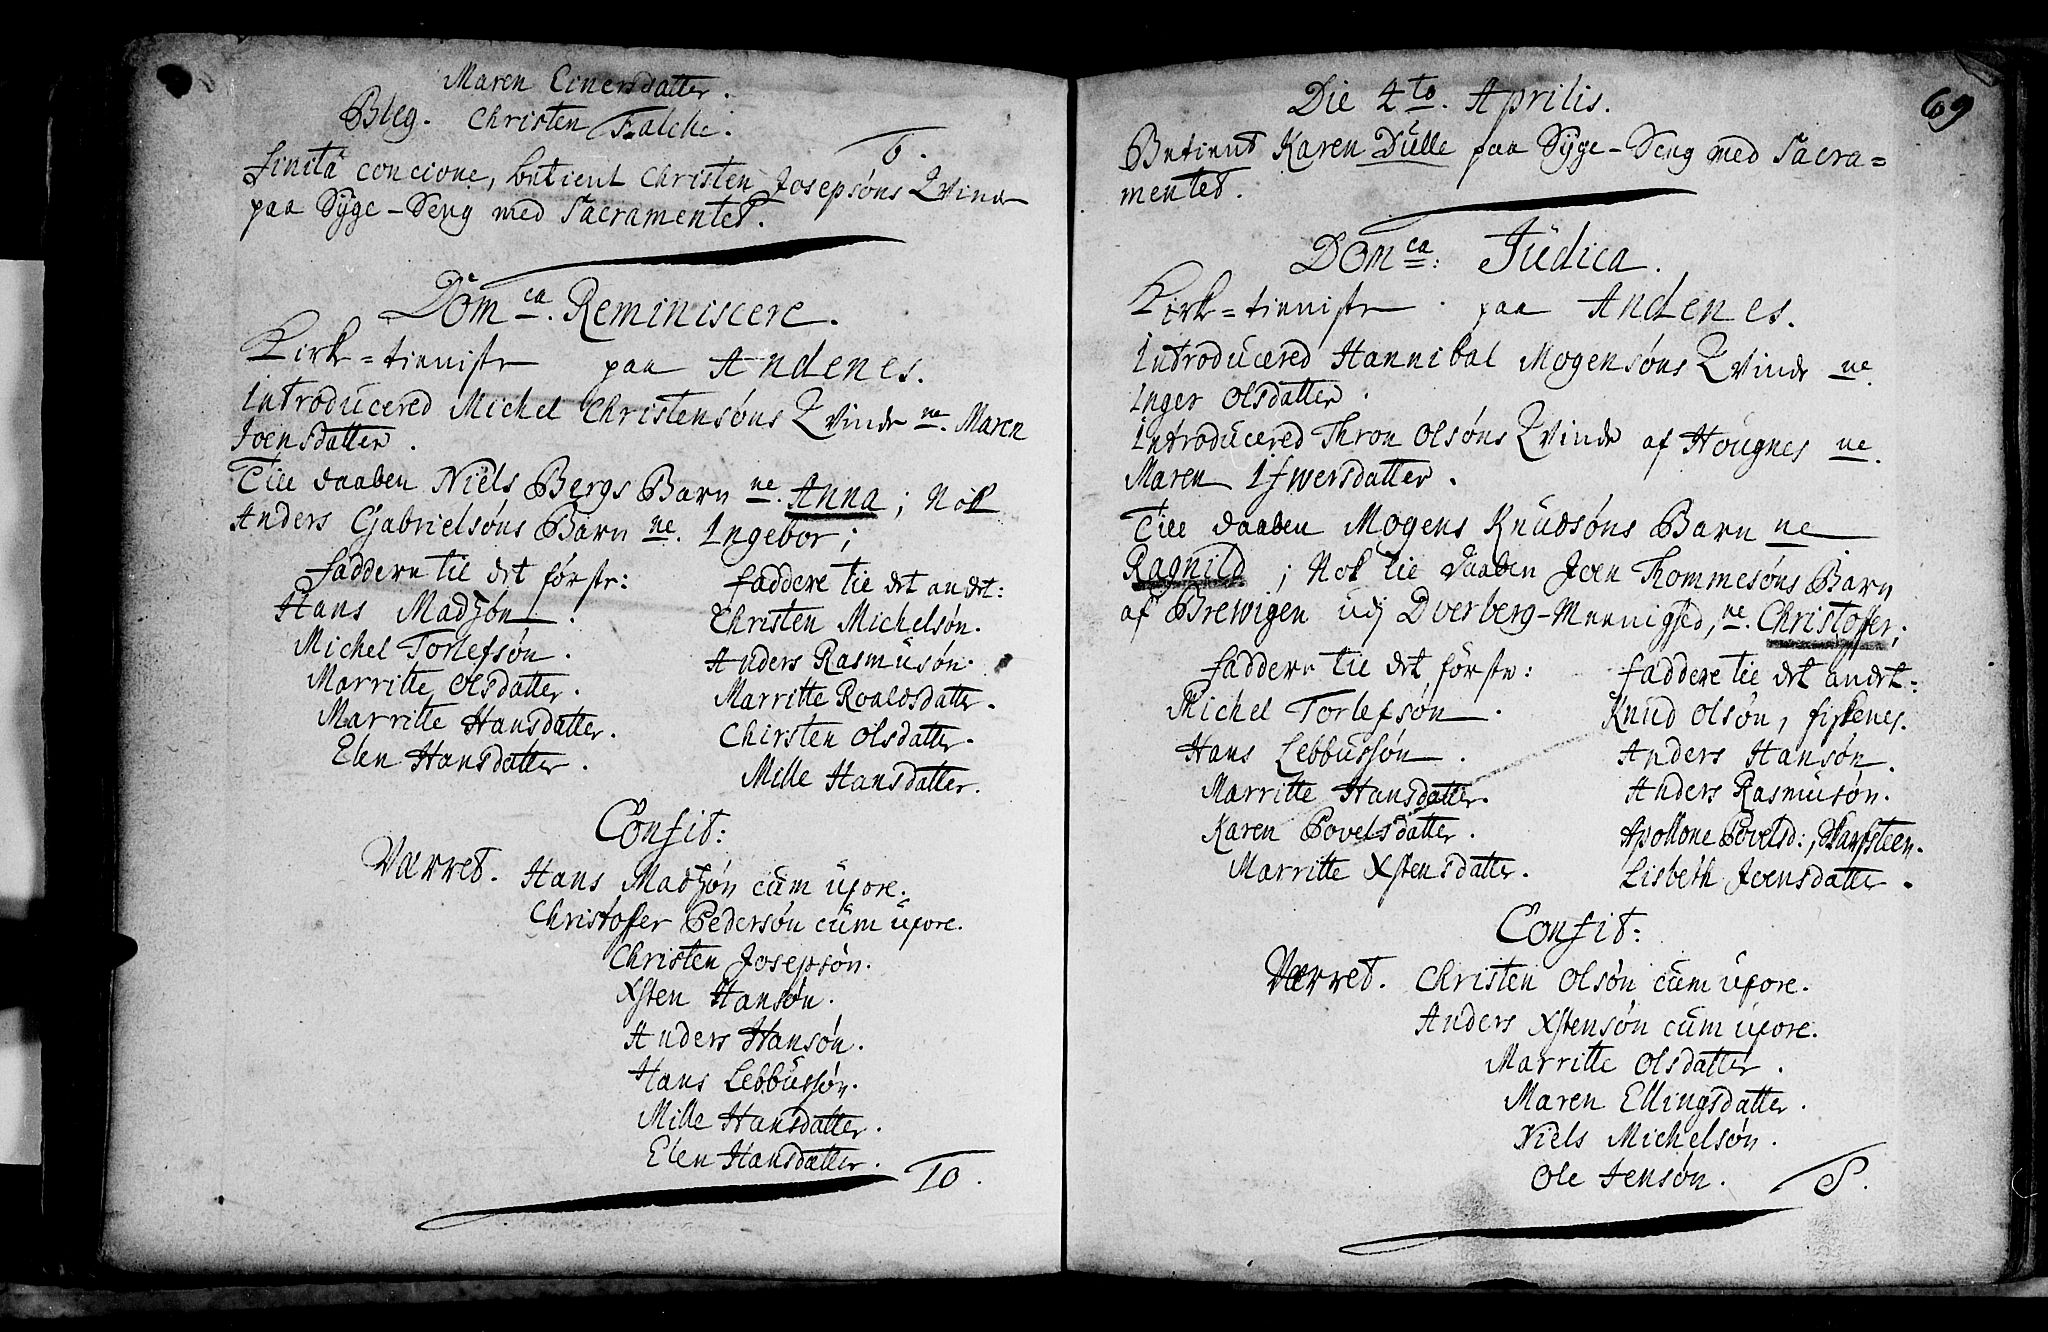 Maren Einersdatter.
Bleg. Christen Falche.
6.
finitâ concione, betient Christen Josepsøns Qvinde
paa Syge-Seng med Sacramentet.
Dom<sup>ca</sup>. Reminiscere.
Kirke=tieniste paa Andenes.
Introducered Michel Christensøns Qvinde ne. Maren
Joensdatter.
Till daaben Niels Bergs Barn ne. Anna; Nok
Anders Gabrielsøns Barn ne. Ingebor;
faddere til det første:
Hans Madzøn.
Michel Torlefsøn.
Marritte Olsdatter.
Marritte Hansdatter.
Elen Hansdatter.
faddere til det andet:
Christen Michelsøn.
Anders Rasmusøn.
Marritte Roaldsdatter.
Chirsten Olsdatter.
Mille Hansdatter.
Confit:
Værret. Hans Madzøn cum uxore.
Christoffer Pedersøn cum uxore.
Christen Josepsøn.
Xsten Hansøn.
Anders Hansøn.
Hans Lebbussøn.
Mille Hansdatter.
Elen Hansdatter.
10.
69
Die 4<sup>to</sup>. Aprilis.
Betient Karen Dulle paa Syge-Seng med Sacra=
mentet.
Dom<sup>ca</sup>: Judica.
Kirke=tieniste paa Andenes.
Introducered Hannibal Mogensøns Qvinde ne.
Inger Olsdatter.
Introducered Thron Olsøns Qvinde af Hougnes ne.
Maren Ifwersdatter.
Till daaben Mogens Knudsøns Barn ne
Ragnild; Nok til daaben Joen Thommesøns Barn
af Brewigen udj Dverberg-Meenighed, ne. Christoffer;
faddere til det første:
Michel Torlefsøn.
Hans Lebbussøn.
Marritte Hansdatter.
Karen Povelsdatter.
Marritte Xstensdatter.
faddere til det andet:
Knud Olsøn, fiskenes.
Anders Hansøn.
Anders Rasmusøn.
Apollone Povelsd:, Skarfsteen.
Lisbeth Joensdatter.
Confit:
Værret. Christen Olsøn cum uxore.
Anders Xstensøn cum uxore.
Marritte Olsdatter.
Maren Ellingsdatter.
Niels Michelsøn.
Ole Jensøn.
8.